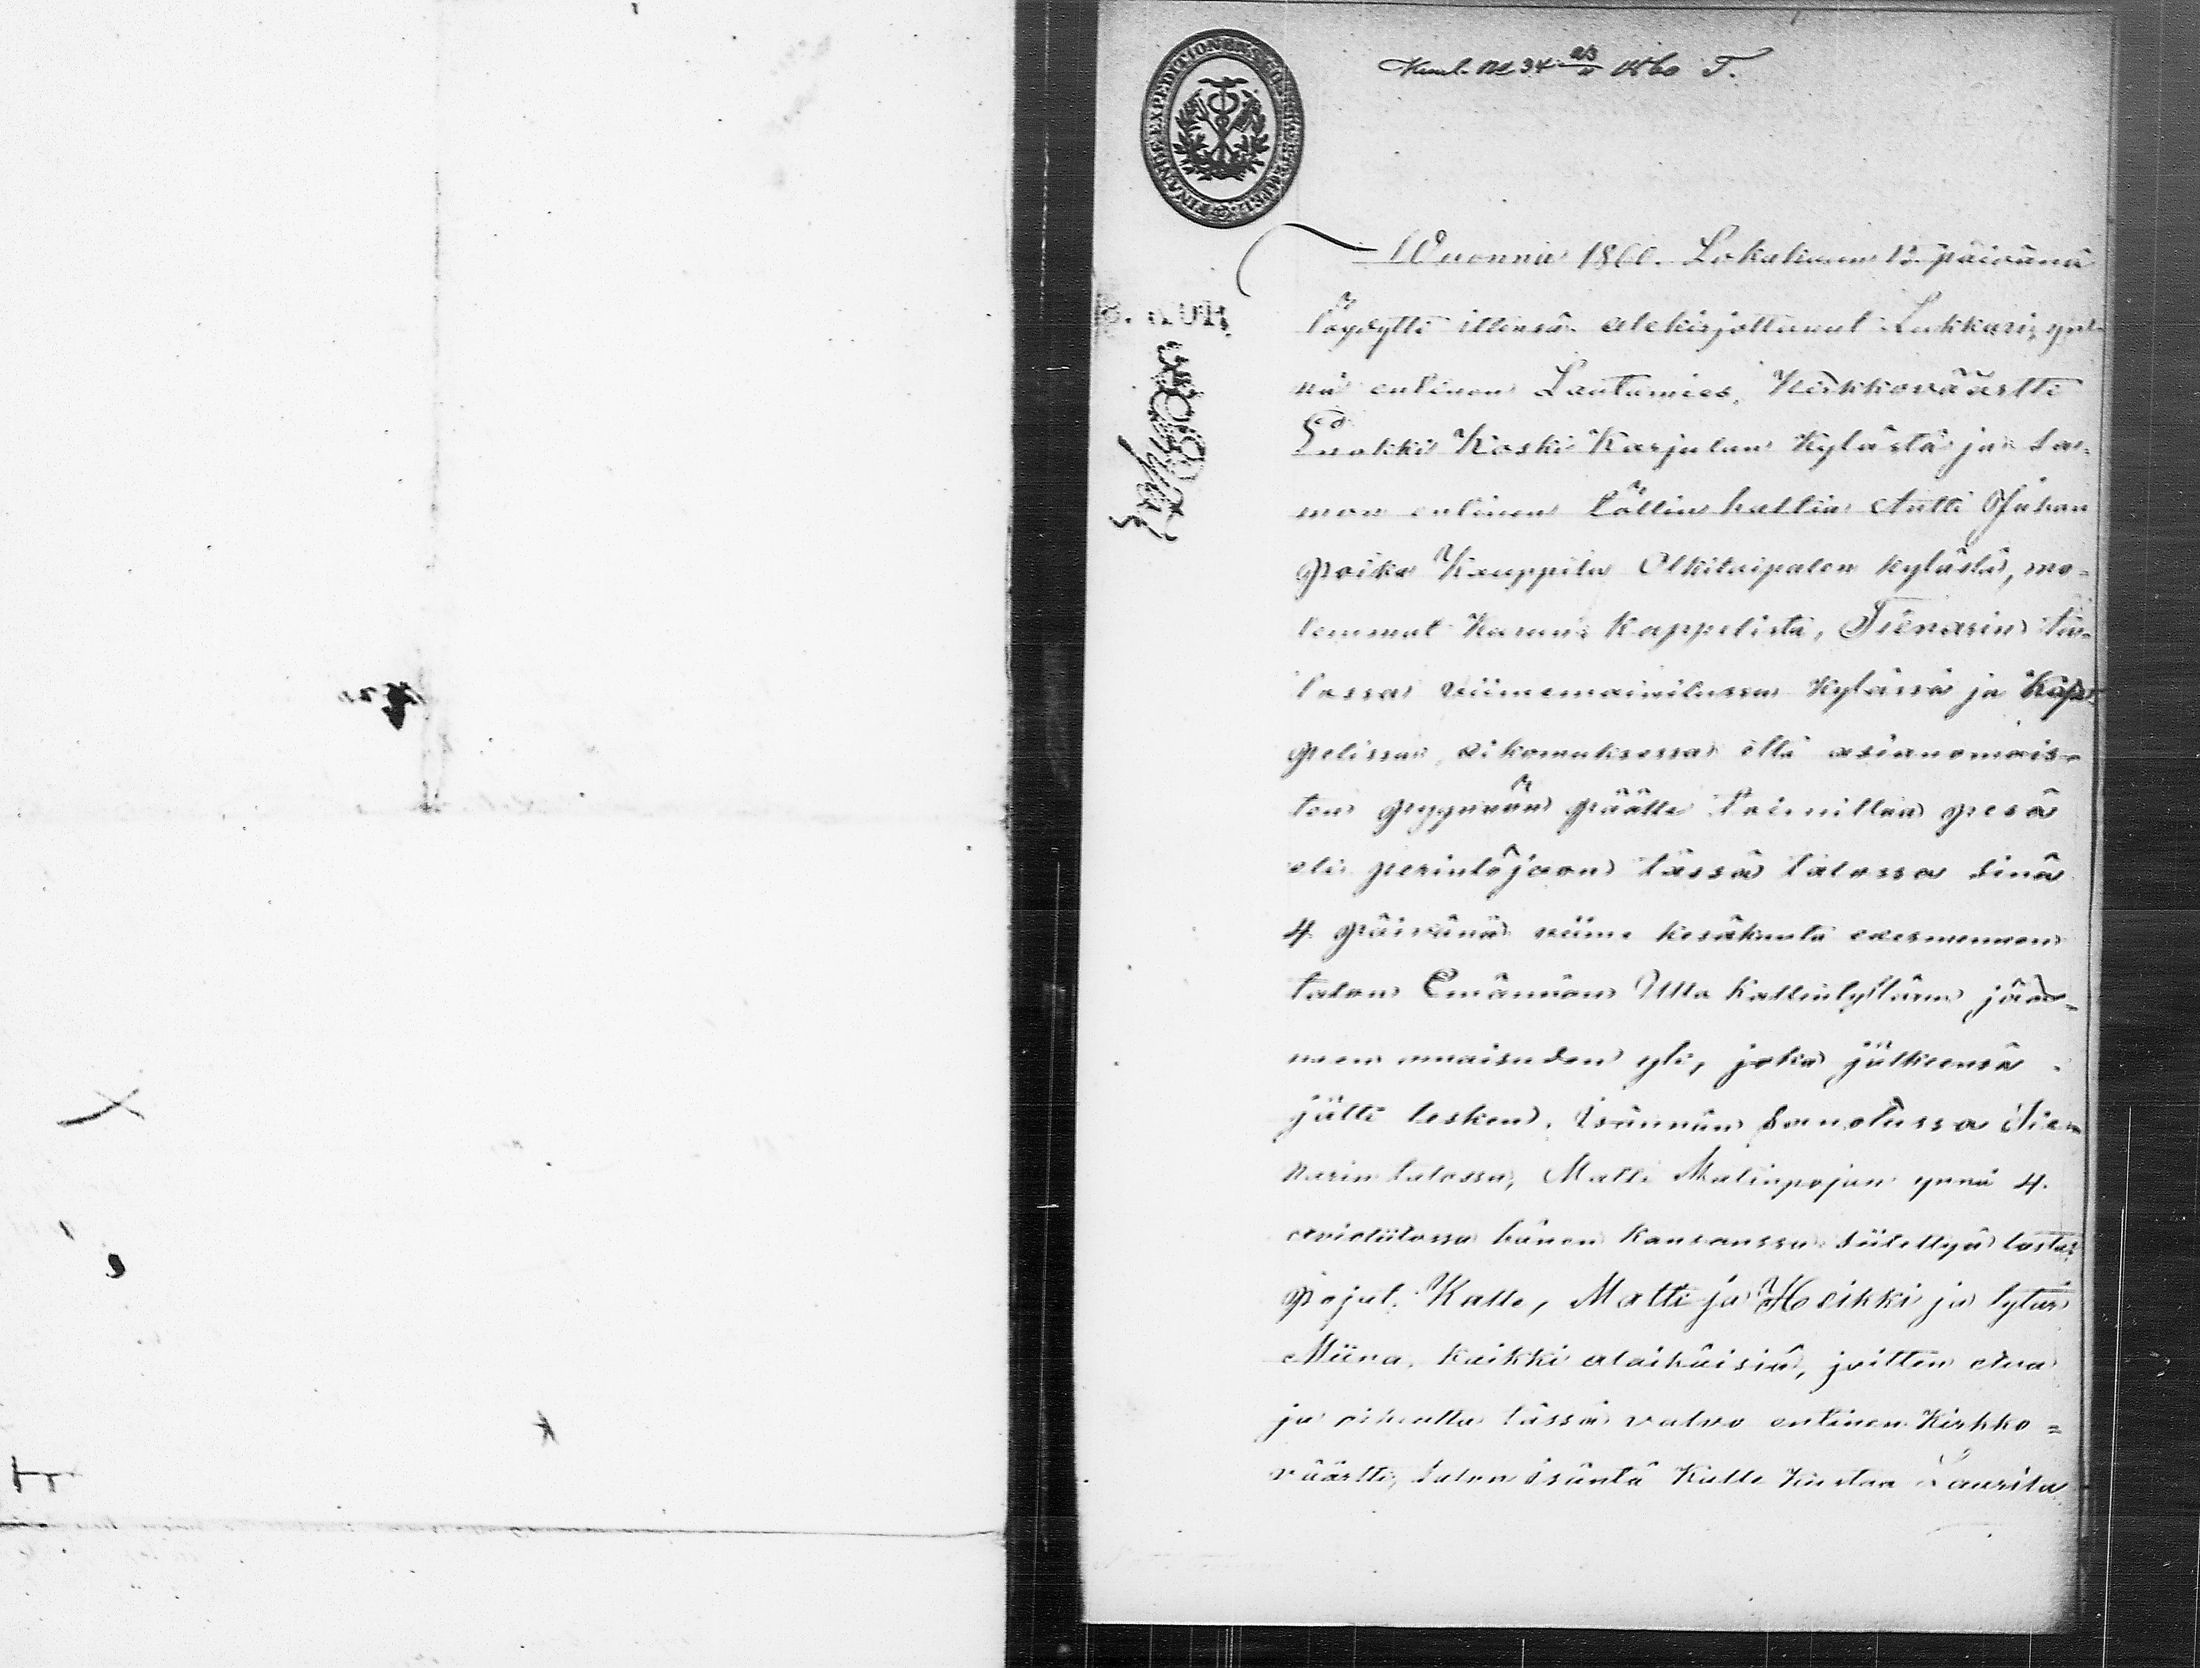 34 23/11 1860 T.
FINANCE EXPEDITIONENS
Wuonna 1860. Lokakuun 12. päivänä
löydytti ittensä allekirjottanut Lukkari, yn-
nä entinen Lautamies, Kirkkoväärtti
Enokki Koski Karjulan Kylästä ja sa-
mon entinen tällinhaltia Antti Juhan
poika Kauppila Olkitaipalen kylästä, mo-
lemmat Karun Kappelista, Tienarin ta-
lossa viimemainitussa Kylässä ja Kap-
pelissa, aikomuksessa että asianomais-
ten pyynnön päälle toimittaa pesä
eli perintöjaon tässä talossa sinä
4 päivänä viime kesäkuuta edesmennen
talon Emännän Ulla Kallentyttären jää-
neen omaisuden yli, joka jälkeensä
jätti lesken, Isännän sanotussa Tie-
narin talossa, Matti Matinpojan ynnä 4.
avioliitossa hänen kanssansa siitettyä lasta;
pojat. Kalle, Matti ja Heikki ja tytär
Miina, kaikki alaikäisiä, joitten etua
ja oikeutta tässä valvo entinen Kirkko=
väärtti, talon isäntä Kalle Kustaa Laurila